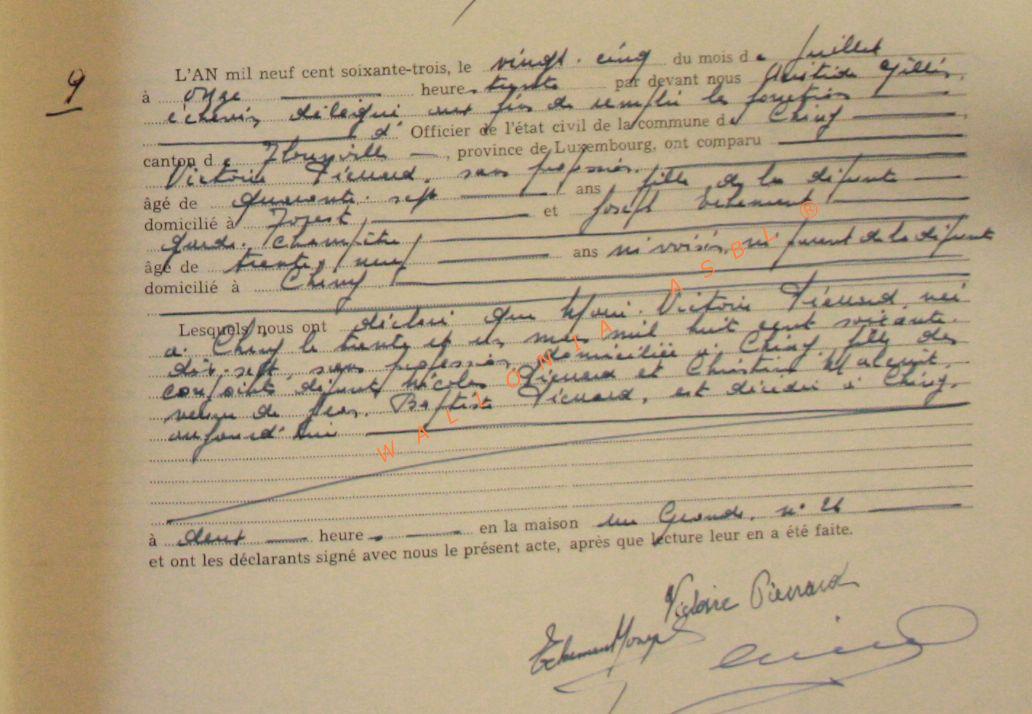 9
L'AN mil neuf cent soixante-trois, le vingt-cinq du mois de Juillet
à onze heures trente par devant nous Aristide Gillis,
échevin délégué aux fins de remplir les fonctions
d' Officier de l'état civil de la commune de Chiny,
canton de Florenville, province de Luxembourg, ont comparu
Victoire Piérrard, sans profession,
âgé de quarante-sept ans fille de la défunte
domicilié à et Joseph
garde-champêtre
âgé de trente-neuf ans ni voisin, ni parent de la défunte
domicilié à Chiny
Lesquels nous ont déclaré que Marie-Victoire Piérrard, née
à Chiny le trente et un mai mil huit cent soixante-
dix-sept, sans profession, domiciliée à Chiny, fille des
conjoints défunts Nicolas Piérrard et Christine
veuve de Jean-Baptiste Piérrard, est décédée à Chiny,
aujourd'hui
à deux heures en la maison rue Grande, n° 26
et ont les déclarants signé avec nous le présent acte, après que lecture leur en a été faite.
Victoire Pierrard
Joseph
WALLONIA ASBL ®